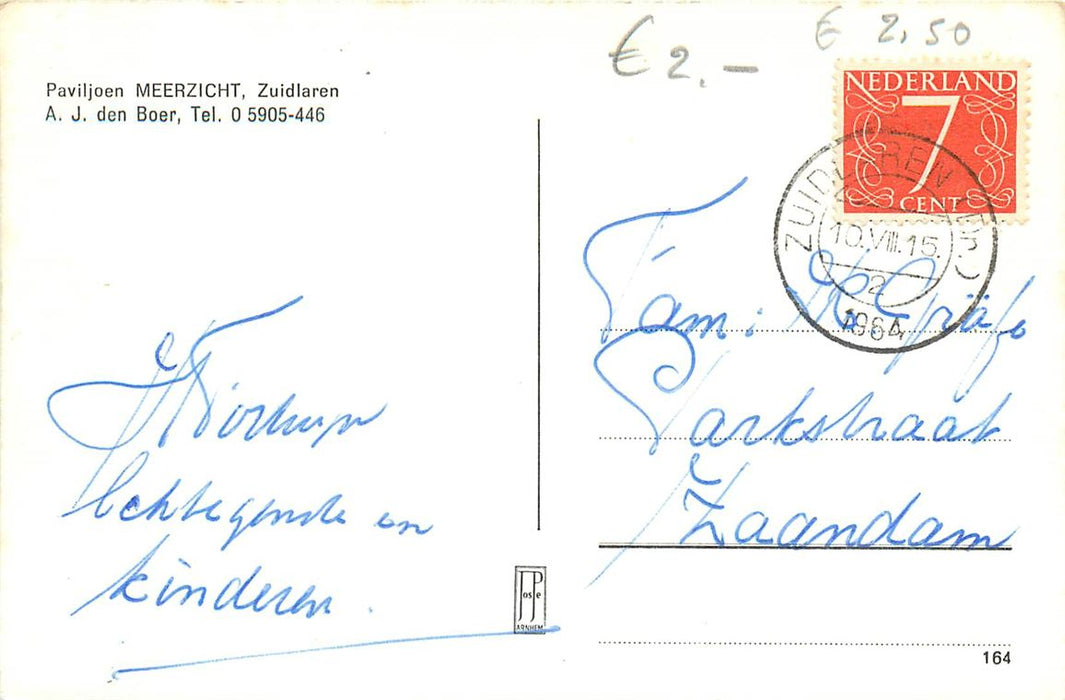 Paviljoen MEERZICHT, Zuidlaren
A. J. den Boer, Tel. 0 5905-446
€ 2.-
€ 2,50
NEDERLAND
7
CENT
ZUIDLAREN (Dr.)
10.VIII.15.
2
1964
Fam:
Parkstraat
Zaandam
Echtegenote en
kinderen.
JosPe
ARNHEM
164